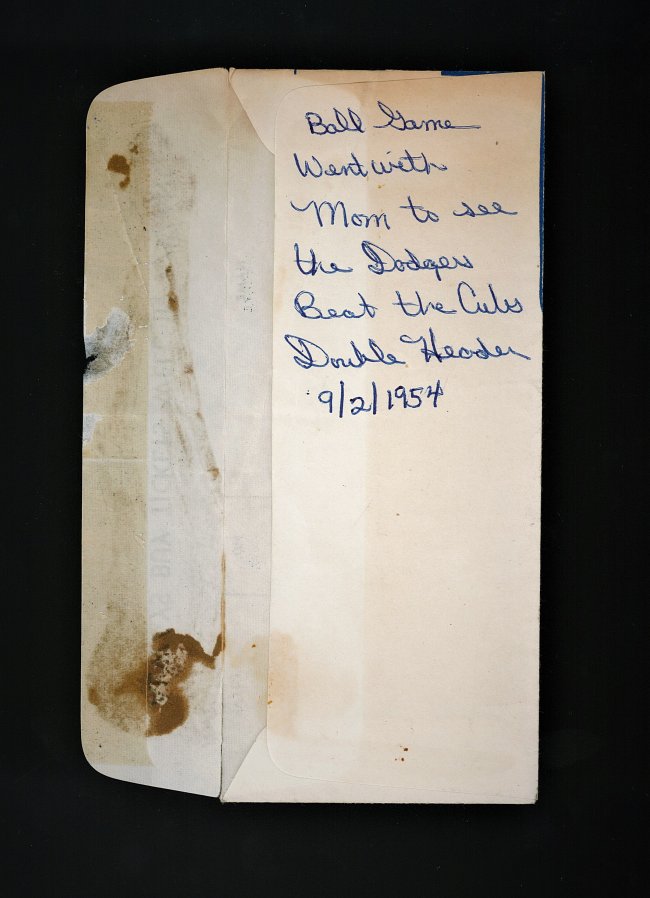 Ball Game
Went with
Mom to see
the Dodgers
Beat the Cubs
Double Header
9/2/1954